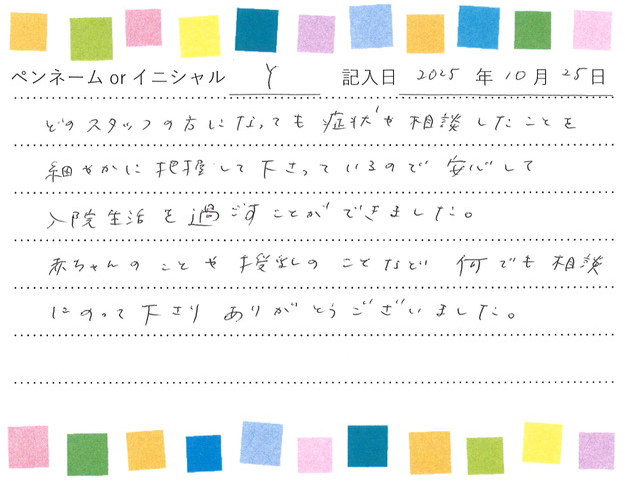 ペンネーム or イニシャル Y 記入日 2025 年 10 月 25 日
どのスタッフの方になっても症状や相談したことを
細やかに把握して下さっているので安心して
入院生活を過ごすことができました。
赤ちゃんのことや授乳のことなど何でも相談
にのって下さりありがとうございました。